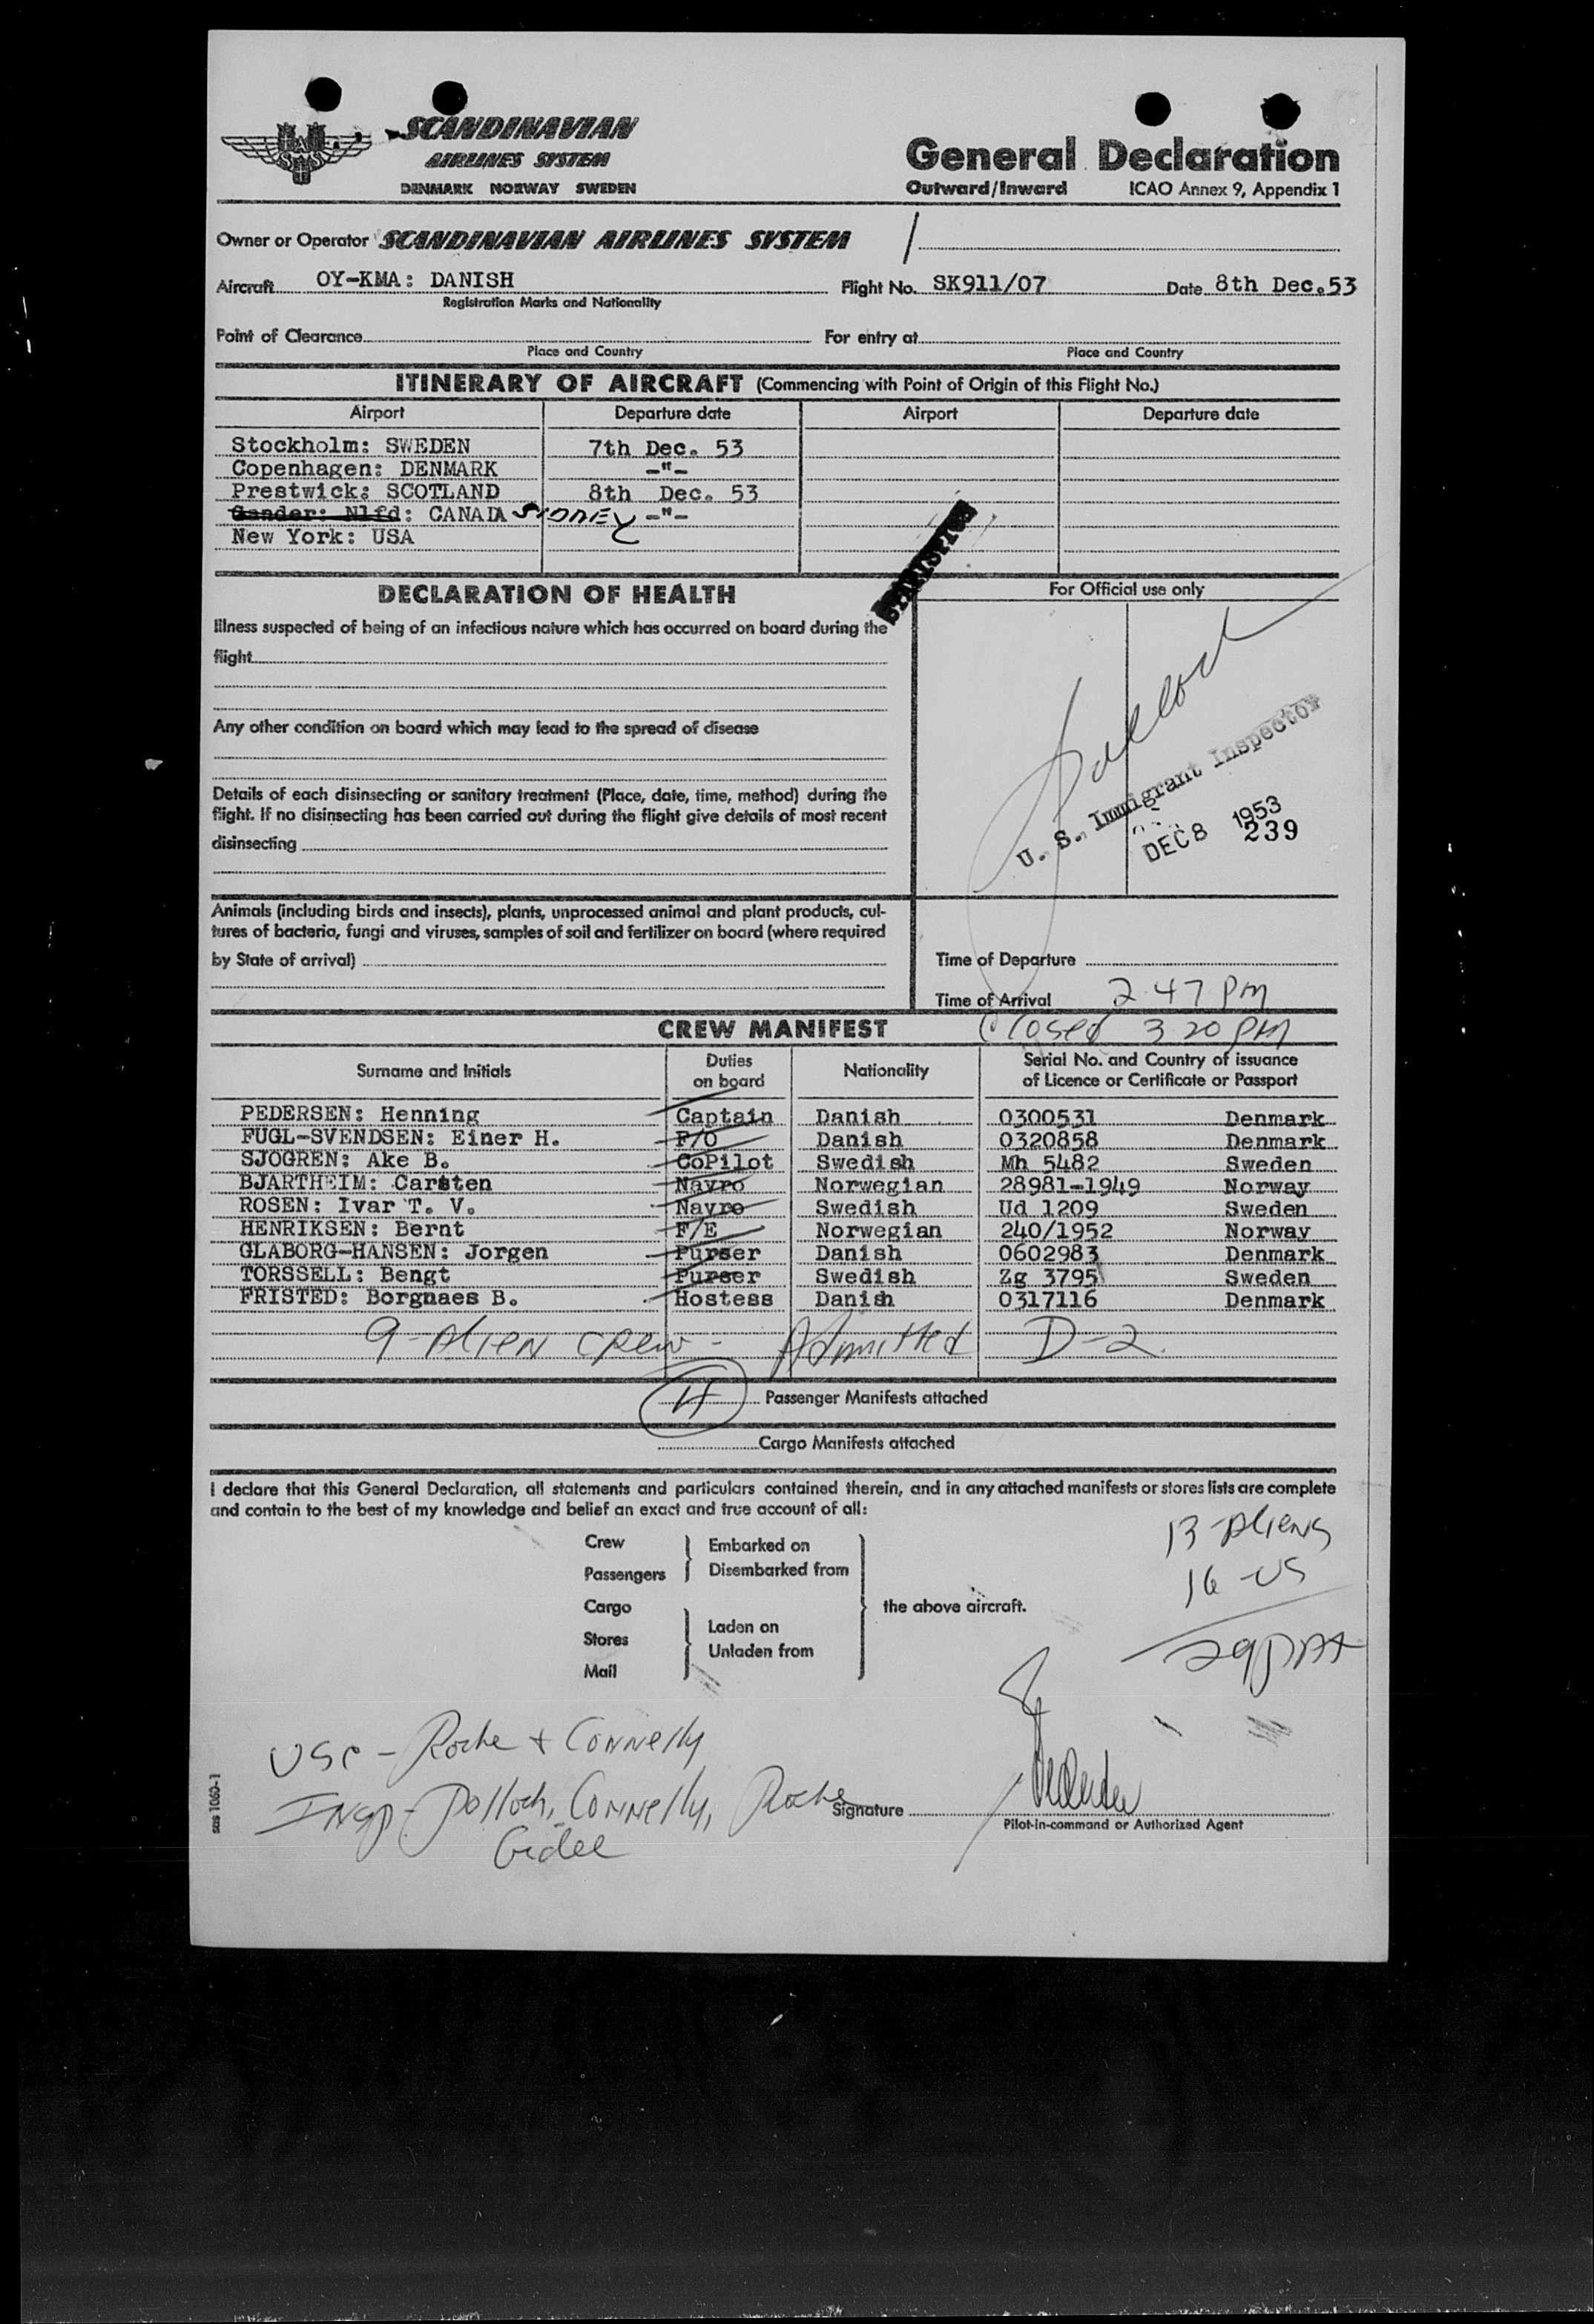 SCANDINAVIAN
AIRLINES SYSTEM
DENMARK NORWAY SWEDEN
SAS
General Declaration
Outward/Inward ICAO Annex 9, Appendix 1
Owner or Operator SCANDINAVIAN AIRLINES SYSTEM
Aircraft OY-KMA: DANISH Flight No. SK911/07 Date 8th Dec.53
Registration Marks and Nationality
Point of Clearance For entry at
Place and Country Place and Country
ITINERARY OF AIRCRAFT (Commencing with Point of Origin of this Flight No.)
Airport Departure date Airport Departure date
Stockholm: SWEDEN 7th Dec. 53
Copenhagen: DENMARK -"-
Prestwick: SCOTLAND 8th Dec. 53
Gander: Nlfd: CANADA SYDNEY -"-
New York: USA
DECLARATION OF HEALTH
For Official use only
Illness suspected of being of an infectious nature which has occurred on board during the
flight
Any other condition on board which may lead to the spread of disease
Details of each disinsecting or sanitary treatment (Place, date, time, method) during the
flight. If no disinsecting has been carried out during the flight give details of most recent
disinsecting
U. S. Immigrant Inspector
DEC 8 1953
239
Animals (including birds and insects), plants, unprocessed animal and plant products, cul-
tures of bacteria, fungi and viruses, samples of soil and fertilizer on board (where required
by State of arrival)
Time of Departure
Time of Arrival 2 47 PM
CREW MANIFEST Closed 3 20 PM
Surname and Initials Duties on board Nationality Serial No. and Country of issuance of Licence or Certificate or Passport
PEDERSEN: Henning Captain Danish 0300531 Denmark
FUGL-SVENDSEN: Einer H. F/O Danish 0320858 Denmark
SJOGREN: Ake B. CoPilot Swedish Mh 5482 Sweden
BJARTHEIM: Carsten Navro Norwegian 28981-1949 Norway
ROSEN: Ivar T. V. Navro Swedish Ud 1209 Sweden
HENRIKSEN: Bernt F/E Norwegian 240/1952 Norway
GLABORG-HANSEN: Jorgen Purser Danish 0602983 Denmark
TORSSELL: Bengt Purser Swedish Zg 3795 Sweden
FRISTED: Borgnaes B. Hostess Danish 0317116 Denmark
9-Alien Crew - Admitted D-2
Passenger Manifests attached
Cargo Manifests attached
I declare that this General Declaration, all statements and particulars contained therein, and in any attached manifests or stores lists are complete
and contain to the best of my knowledge and belief an exact and true account of all:
Crew Embarked on
Passengers Disembarked from
Cargo the above aircraft.
Stores Laden on
Mail Unladen from
13-Aliens
16-US
USC - Roche + Connelly
Insp - Pollock, Connelly, Roche
Signature
Pilot-in-command or Authorized Agent
sas 1060-1